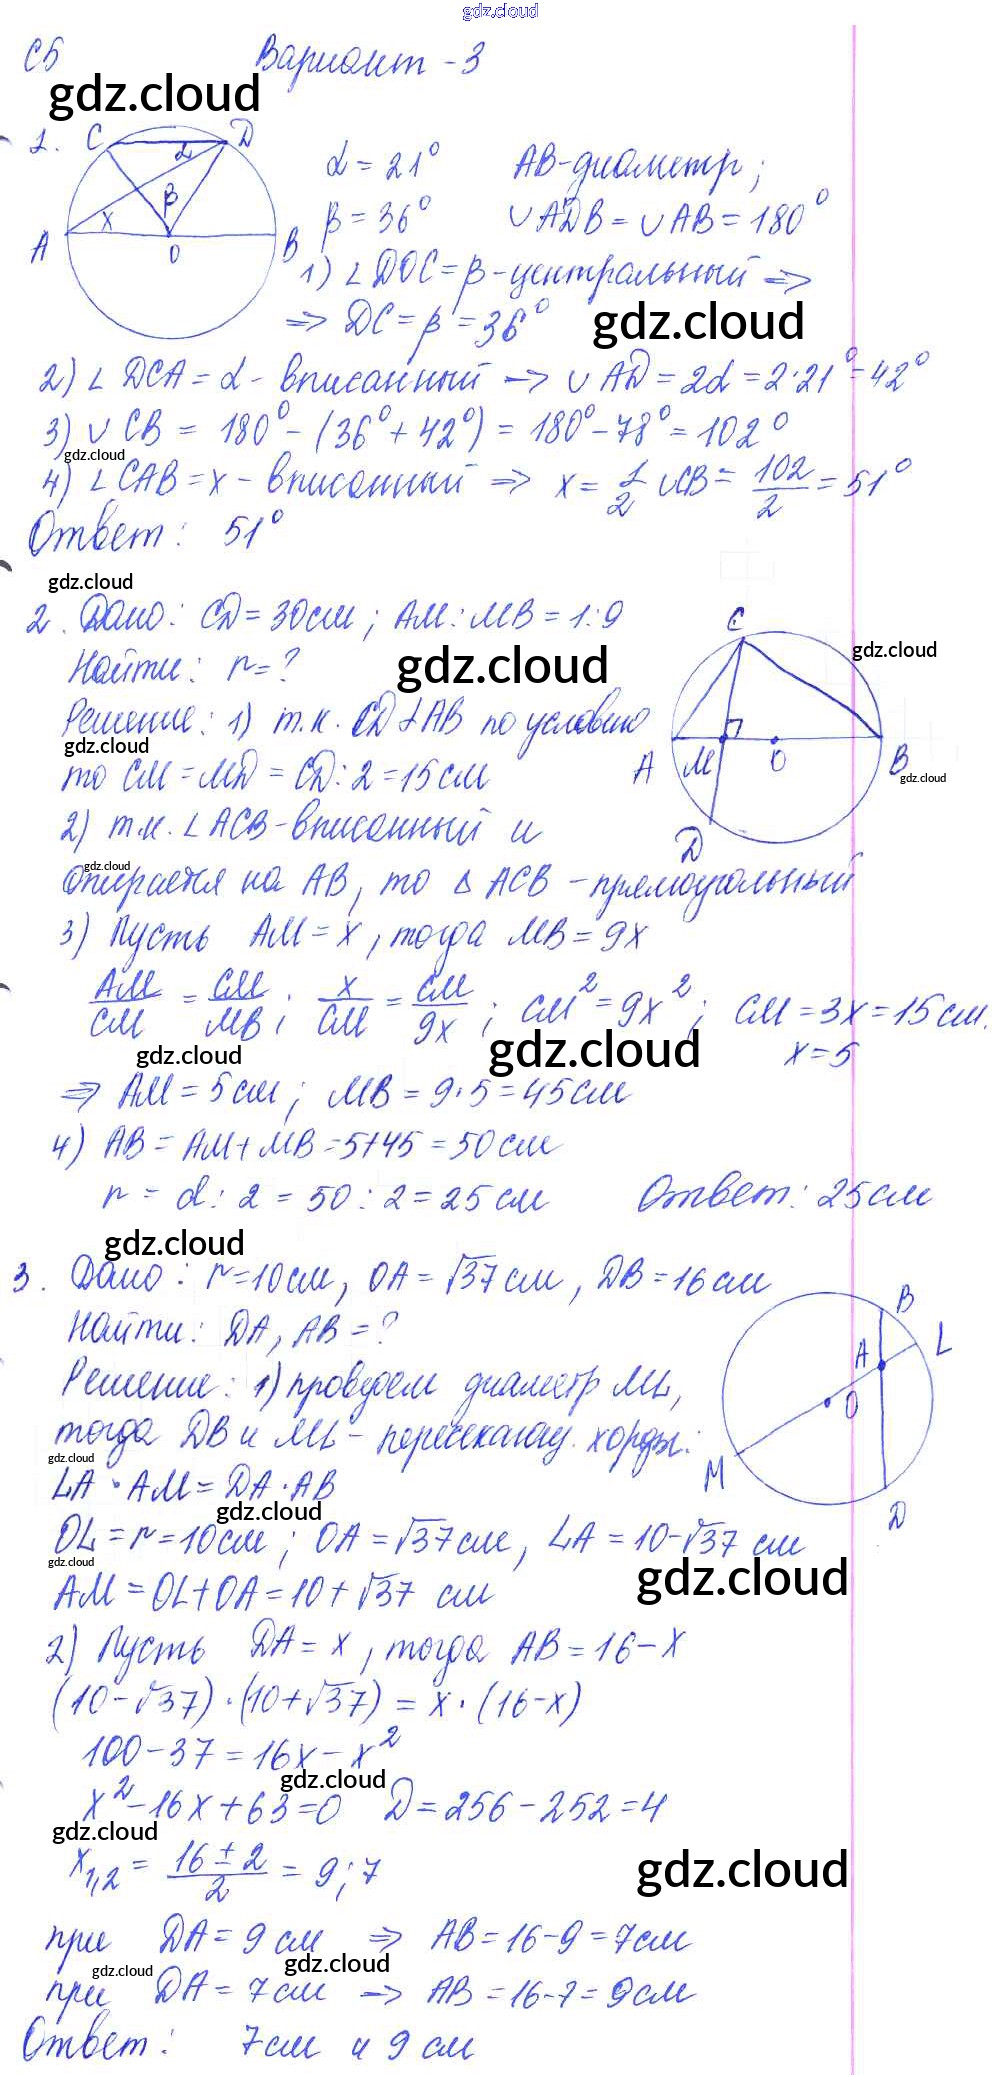 gdz.cloud
С5 Вариант - 3
gdz.cloud
1. C D α β x A O B
α = 21° AB - диаметр;
β = 36° ∪ADB = ∪AB = 180°
1) ∠DOC = β - центральный ⇒
⇒ DC = β = 36° gdz.cloud
2) ∠DCA = α - вписанный → ∪AD = 2α = 2·21° = 42°
3) ∪CB = 180° - (36° + 42°) = 180° - 78° = 102°
gdz.cloud
4) ∠CAB = x - вписанный ⇒ x = 1/2 ∪CB = 102/2 = 51°
Ответ: 51°
gdz.cloud
2. Дано: CD = 30см; AM : MB = 1:9
C A M O B D
gdz.cloud
Найти: r = ? gdz.cloud
Решение: 1) т.к. CD ⊥ AB по условию
gdz.cloud
то CM = MD = CD : 2 = 15 см
gdz.cloud
2) т.к. ∠ACB - вписанный и
gdz.cloud
опирается на AB, то △ ACB - прямоугольный
3) Пусть AM = x, тогда MB = 9x
AM/CM = CM/MB; x/CM = CM/9x; CM² = 9x²; CM = 3x = 15см.
gdz.cloud gdz.cloud x = 5
⇒ AM = 5см; MB = 9·5 = 45см
4) AB = AM + MB = 5+45 = 50 см
r = d : 2 = 50 : 2 = 25 см Ответ: 25 см
gdz.cloud
3. Дано: r = 10см, OA = √37 см, DB = 16 см
B L A O M D
Найти: DA, AB = ?
Решение: 1) проведем диаметр ML,
тогда DB и ML - пересекающ. хорды:
gdz.cloud
LA · AM = DA · AB
gdz.cloud
OL = r = 10см; OA = √37см, LA = 10-√37 см
gdz.cloud
gdz.cloud
AM = OL + OA = 10 + √37 см
2) Пусть DA = x, тогда AB = 16 - x
(10 - √37) · (10 + √37) = x · (16 - x)
100 - 37 = 16x - x²
gdz.cloud
x² - 16x + 63 = 0 D = 256 - 252 = 4
gdz.cloud
x₁,₂ = 16 ± 2/2 = 9; 7
gdz.cloud
при DA = 9 см ⇒ AB = 16 - 9 = 7см
gdz.cloud gdz.cloud
при DA = 7 см → AB = 16 - 7 = 9см
Ответ: 7см и 9 см